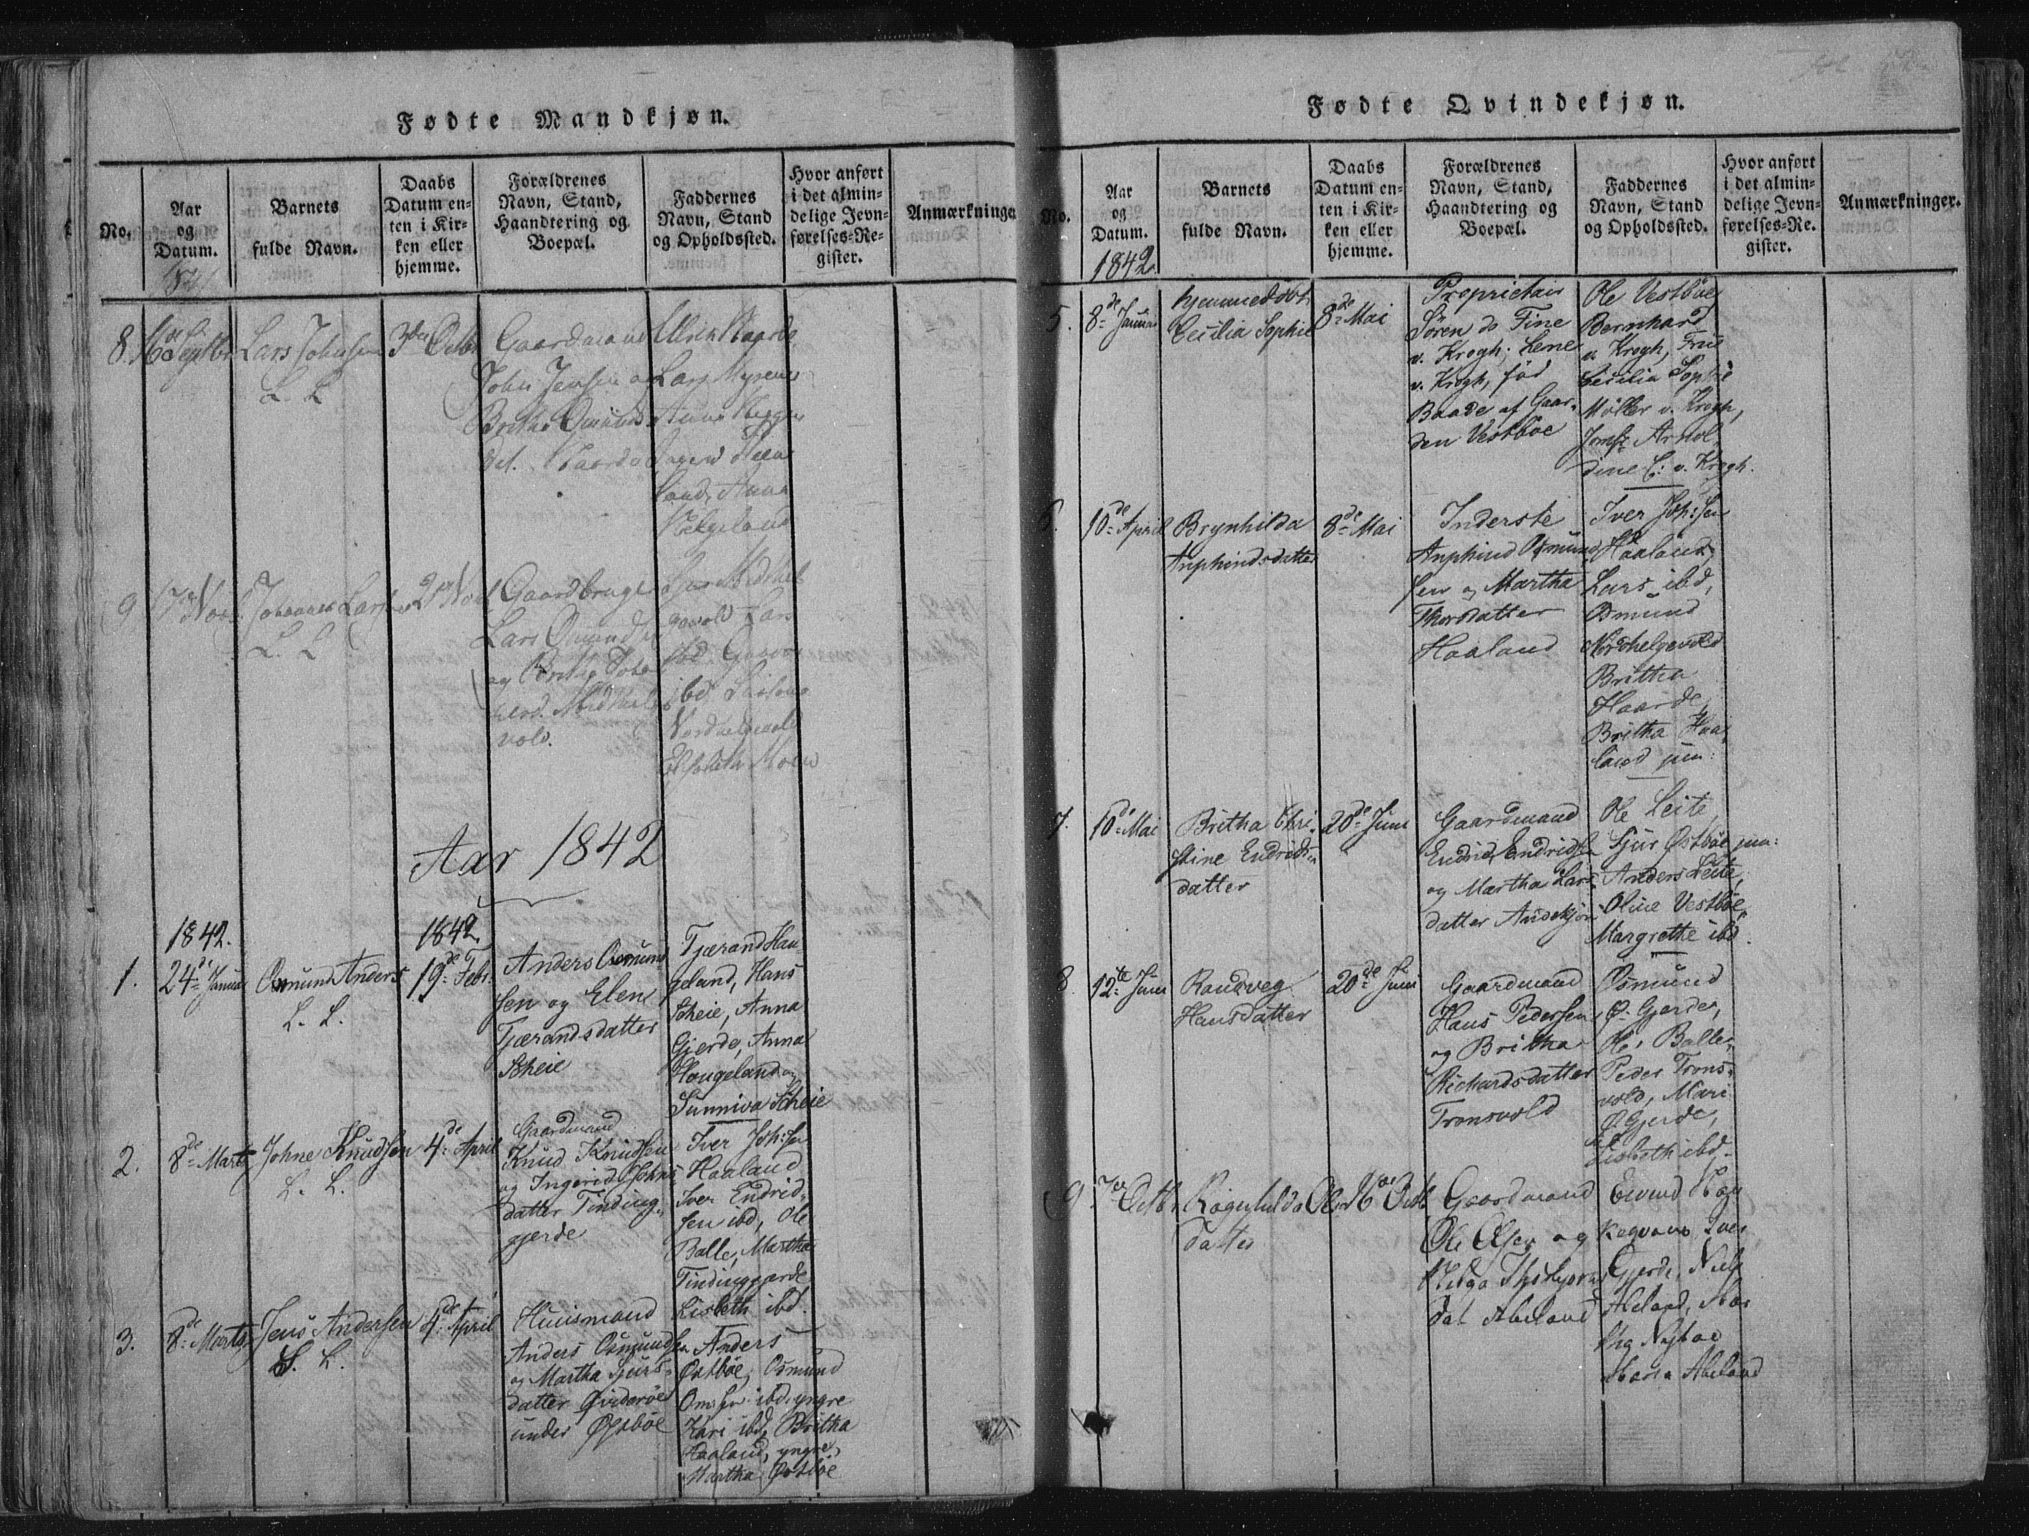 Fødte Mandkjøn.
No.
Aar
og
Datum.
Barnets
fulde Navn.
Daabs
Datum en-
ten i Kir-
ken eller
hjemme.
Forældrenes
Navn, Stand,
Haandtering og
Boepæl.
Faddernes
Navn, Stand
og Opholdssted.
Hvor anført
i det almin-
delige Jevn-
førelses-Re-
gister.
Anmærkninge
1841
8.
16de Septbr
Lars Johnsen
L. L
3die Octbr
Gaardmand
John Jensen og
Britha Omunds
dat.
Lars Myrene
Anna
Helgeland
9
17 Nov
Johannes Larsen
L. L
21 Nov
Gaardbruger
Lars Omunds
og Brita
vold.
Lars
ibd
Elsebeth Moen
Aar 1842
1842.
1.
24de Januar
Osmund Anders
L. L.
1842
19de Febr.
Anders Osmund
sen og Elen
Tjærandsdatter
Scheie
Tjærand Hau
geland, Hans
Scheie, Anna
Gjerde, Anna
Haugeland og
Sunniva Scheie
2.
8de Marts
Johne Knudsen
L. L.
4de April
Gaardmand
Knud Knudsen
og Ingerid Johns
datter Tinding-
gjerde
Iver Joh:sen
Haaland
Iver Endrid-
sen ibd, Ole
Balle, Martha
Tindinggjerde
Lisbeth ibd.
3.
8de Marts
Jens Andersen
L. L.
4de April
Huusmand
Anders Osmundsen
og Martha Sjurs-
datter Øviderøe
under Østbøe
Anders
Østbøe, Osmund
Om:sen ibd. yngre
Kari ibd, Britha
Haaland, yngre,
Martha Østbøe
Fødte Qvindekjøn.
No.
Aar
og
Datum.
Barnets
fulde Navn.
Daabs
Datum en-
ten i Kir-
ken eller
hjemme.
Forældrenes
Navn, Stand,
Haandtering og
Boepæl.
Faddernes
Navn, Stand
og Opholdssted.
Hvor anført
i det almin-
delige Jevn-
førelses-Re-
gister.
Anmærkninger.
1842
5.
8de Januar
hjemmedøbt
Cecilia Sophie
8de Mai
Proprietair
Søren de Fine
v. Krogh; Lene
v. Krogh, född
Baade af Gaar-
den Vestbøe
Ole Vestbøe
Bernhard
v. Krogh, Frue
Cecilia Sophie
Møller v. Krogh,
Jomfr Arnol
dine C: v. Krogh.
6.
10de April
Brynhilda
Anphindsdatter
8de Mai
Inderste
Anphind Osmund
sen og Martha
Thorsdatter
Haaland
Iver Joh:sen
Haaland,
Lars ibd,
Osmund
Nordhelgevold
Britha
Haarde,
Britha Haa-
land jun:
7.
10de Mai
Britha Chri
stine Endrids-
datter
20de Juni
Gaardmand
Endrid Endridsen
og Martha Lars
datter Andskjøn
Ole Leite,
Sjur Østbøe jun:
Anders Leite,
Oline Vestbøe,
Margrethe ibd.
8
12te Juni
Randveg
Hansdatter
20de Juni
Gaardmand
Hans Pedersen
og Britha
Richardsdatter
Tronsvold
Osmund
Ø. Gjerde,
Ole Balle,
Peder Trons-
vold, Mari
Ø Gjerde,
Lisbeth ibd.
9
7de Octbr
Ragnhilda Ols
datter
16de Octb
Gaardmand
Ole Olsen og
Helga Thorbjørns
dat Abeland
Eivind
Iver
Gjerde, Niels
Abeland,
Maria Abeland